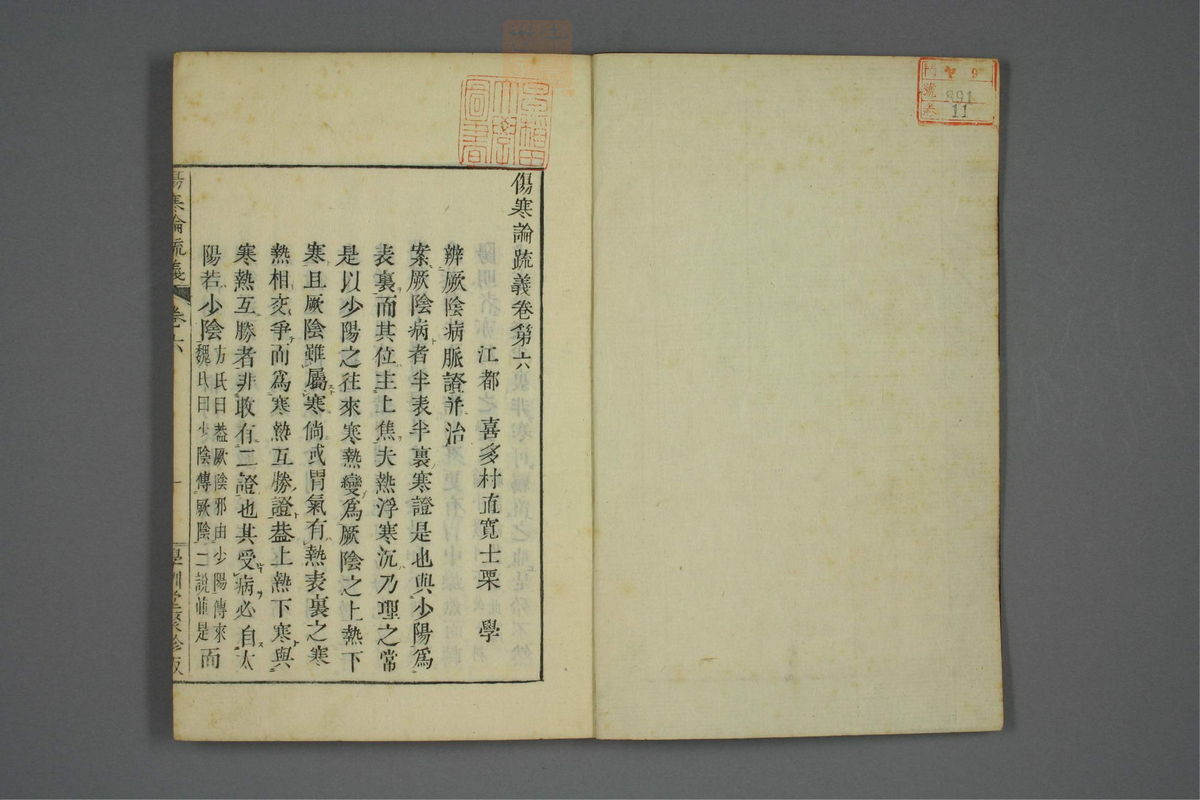 門 ヤ 9
號 891
卷 11
早稲田
大學
圖書
傷寒論疏義卷第六
江都 喜多村直寬士栗 學
辨厥陰病脈證并治
案厥陰病者半表半裏寒證是也與少陽爲
表裏而其位主上焦夫熱浮寒沉乃理之常
是以少陽之往來寒熱變爲厥陰之上熱下
寒且厥陰雖屬寒倘或胃氣有熱表裏之寒
熱相交爭而爲寒熱互勝證蓋上熱下寒與
寒熱互勝者非敢有二證也其受病必自太
陽若少陰方氏曰蓋厥陰邪由少陽傳來魏氏曰少陰傳厥陰二說並是而
傷寒論疏義 卷六 一 學訓堂聚珍版